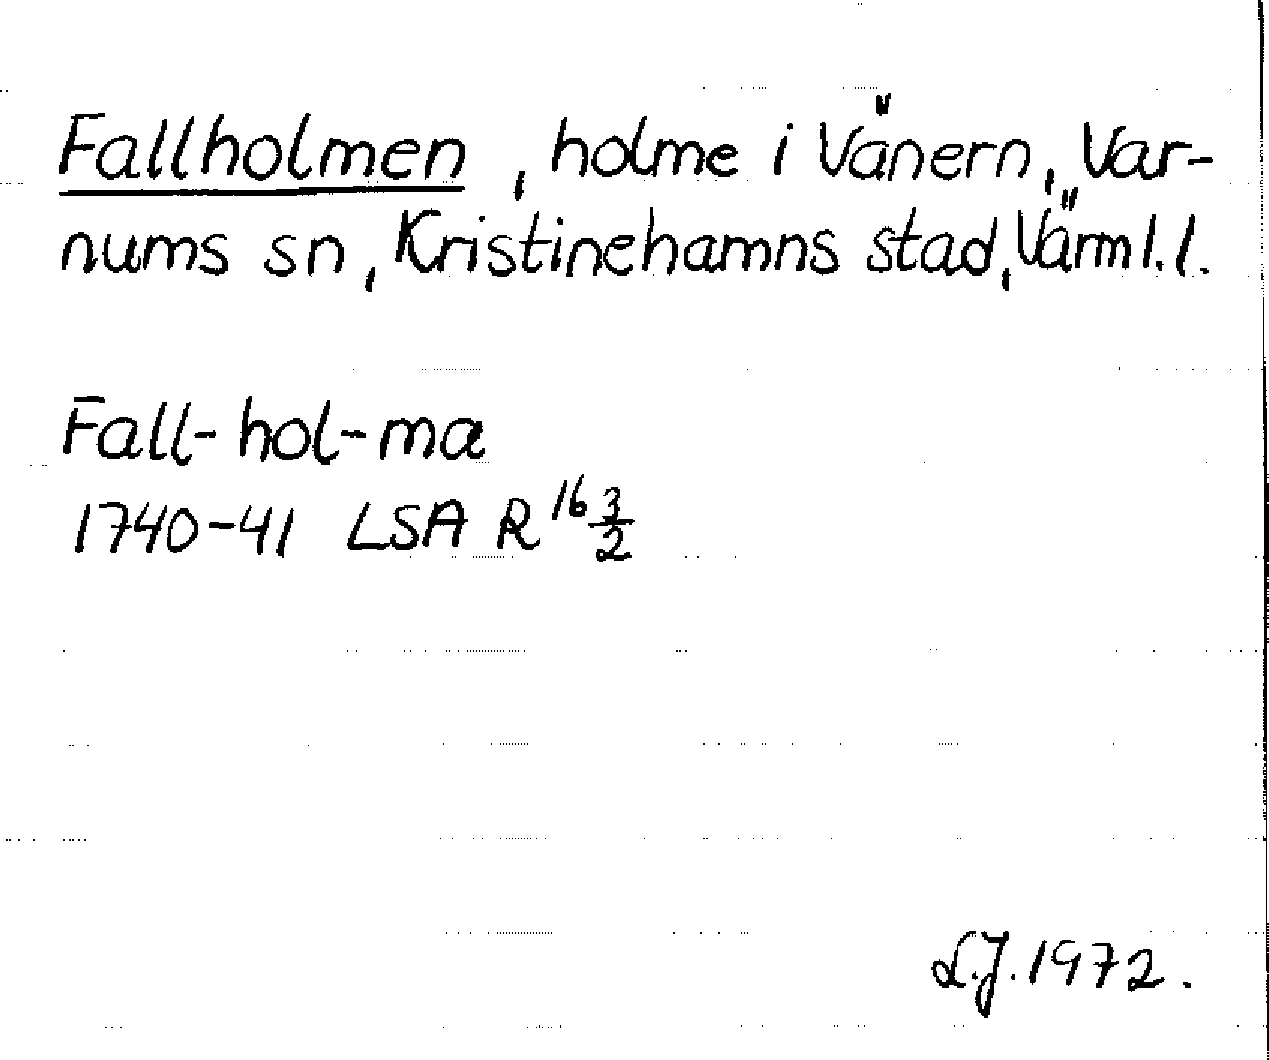 Fallholmen, holme i Vänern, Var-
nums sn, Kristinehamns stad, Värml.l.
Fall-hol-ma
1740-41 LSA R 16 3/2
L.J. 1972.